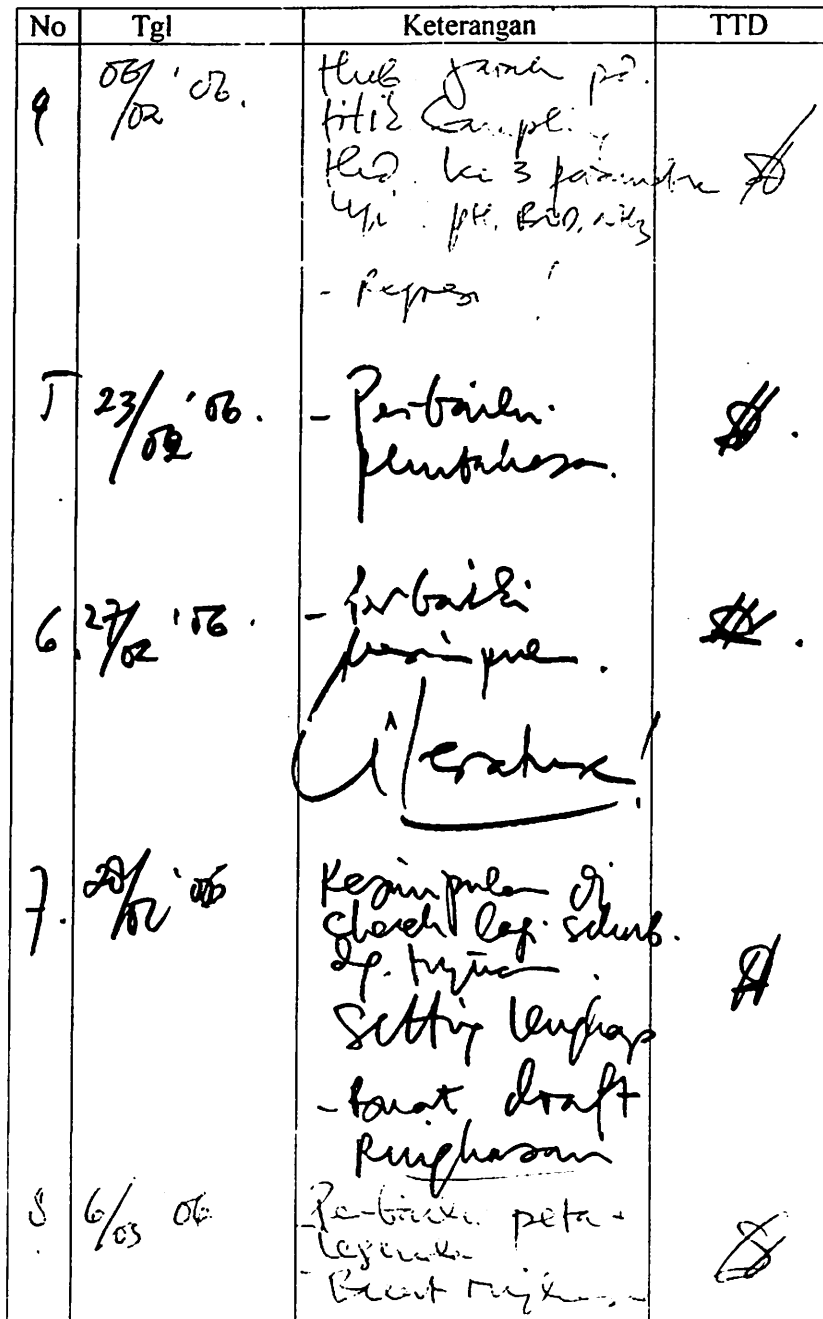 No Tgl Keterangan TTD
9 06/02 '06. Hub jarak pd.
titik sampling
thd. ke 3 parameter
yi. pH. BOD. NH3
- Regresi !
5 23/02 '06. - Perbaiki
pembahasan.
6 27/02 '06. - Perbaiki
kesimpulan.
Literature!
7. 28/02 '06 Kesimpulan di
check lagi sehub.
dg. tujuan.
Setting lengkap
- Buat draft
Ringkasan
8 6/03 06 - Perbaiki peta +
legenda
- Buat